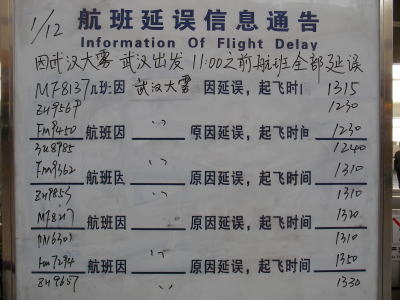 1/12
航班延误信息通告
Information Of Flight Delay
因武汉大雾 武汉出发 11:00之前航班全部延误
MF8137 航班因 武汉大雾 原因延误，起飞时间 1315
1230
FM9450 航班因 〃 原因延误，起飞时间 1230
3U8985 1240
FM9362 航班因 〃 原因延误，起飞时间 1310
〃 1310
航班因 〃 原因延误，起飞时间 1320
1310
FM7294 航班因 〃 原因延误，起飞时间 1350
ZH9657 〃 1330